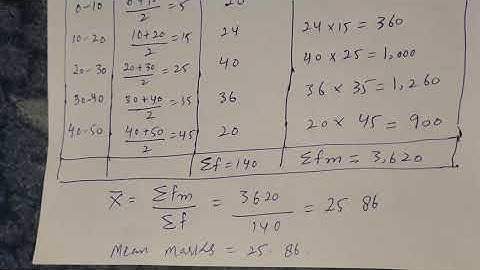 0-10 0+10/2 = 5 20
10-20 10+20/2 = 15 24 24 × 15 = 360
20-30 20+30/2 = 25 40 40 × 25 = 1,000
30-40 30+40/2 = 35 36 36 × 35 = 1,260
40-50 40+50/2 = 45 20 20 × 45 = 900
Σf = 140 Σfm = 3,620
X̄ = Σfm/Σf = 3620/140 = 25 86
Mean marks = 25 86.